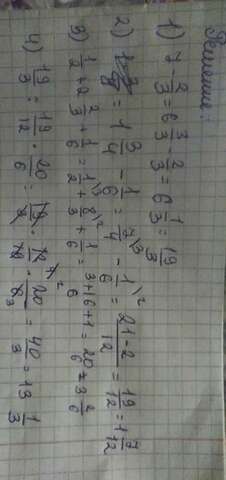 Решение:
1) 7 - 2/3 = 6 3/3 - 2/3 = 6 1/3 = 19/3
2) 1 3/4 - 1/6 = 7/4 \3 - 1/6 \2 = 21-2/12 = 19/12 = 1 7/12
3) 1/2 + 2 2/3 + 1/6 = 1/2 \3 + 8/3 \2 + 1/6 = 3+16+1/6 = 20/6 = 3 2/6
4) 19/3 : 19/12 · 20/6 = 19/3 · 12/19 · 20/6 = 40/3 = 13 1/3